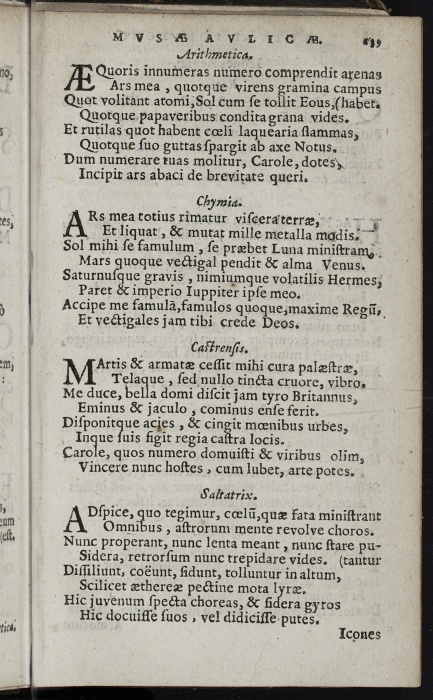 MVSÆ AVLICÆ. 639
Arithmetica.
ÆQuoris innumeras numero comprendit arenas
Ars mea, quotque virens gramina campus
Quot volitant atomi, Sol cum se tollit Eous, (habet.
Quotque papaveribus condita grana vides.
Et rutilas quot habent cœli laquearia flammas,
Quotque suo guttas spargit ab axe Notus.
Dum numerare tuas molitur, Carole, dotes,
Incipit ars abaci de brevitate queri.
Chymia.
ARs mea totius rimatur viscera terræ,
Et liquat, & mutat mille metalla modis.
Sol mihi se famulum, se præbet Luna ministram,
Mars quoque vectigal pendit & alma Venus.
Saturnusque gravis, nimiumque volatilis Hermes,
Paret & imperio Iuppiter ipse meo.
Accipe me famulā, famulos quoque, maxime Regū,
Et vectigales jam tibi crede Deos.
Castrensis.
MArtis & armatæ cessit mihi cura palæstræ,
Telaque, sed nullo tincta cruore, vibro.
Me duce, bella domi discit jam tyro Britannus,
Eminus & jaculo, cominus ense ferit.
Disponitque acies, & cingit mœnibus urbes,
Inque suis figit regia castra locis.
Carole, quos numero domuisti & viribus olim,
Vincere nunc hostes, cum lubet, arte potes.
Saltatrix.
ADspice, quo tegimur, cœlū, quæ fata ministrant
Omnibus, astrorum mente revolve choros.
Nunc properant, nunc lenta meant, nunc stare pu-
Sidera, retrorsum nunc trepidare vides. (tantur
Dissiliunt, coëunt, sidunt, tolluntur in altum,
Scilicet æthereæ pectine mota lyræ.
Hic juvenum specta choreas, & sidera gyros
Hic docuisse suos, vel didicisse putes.
Icones